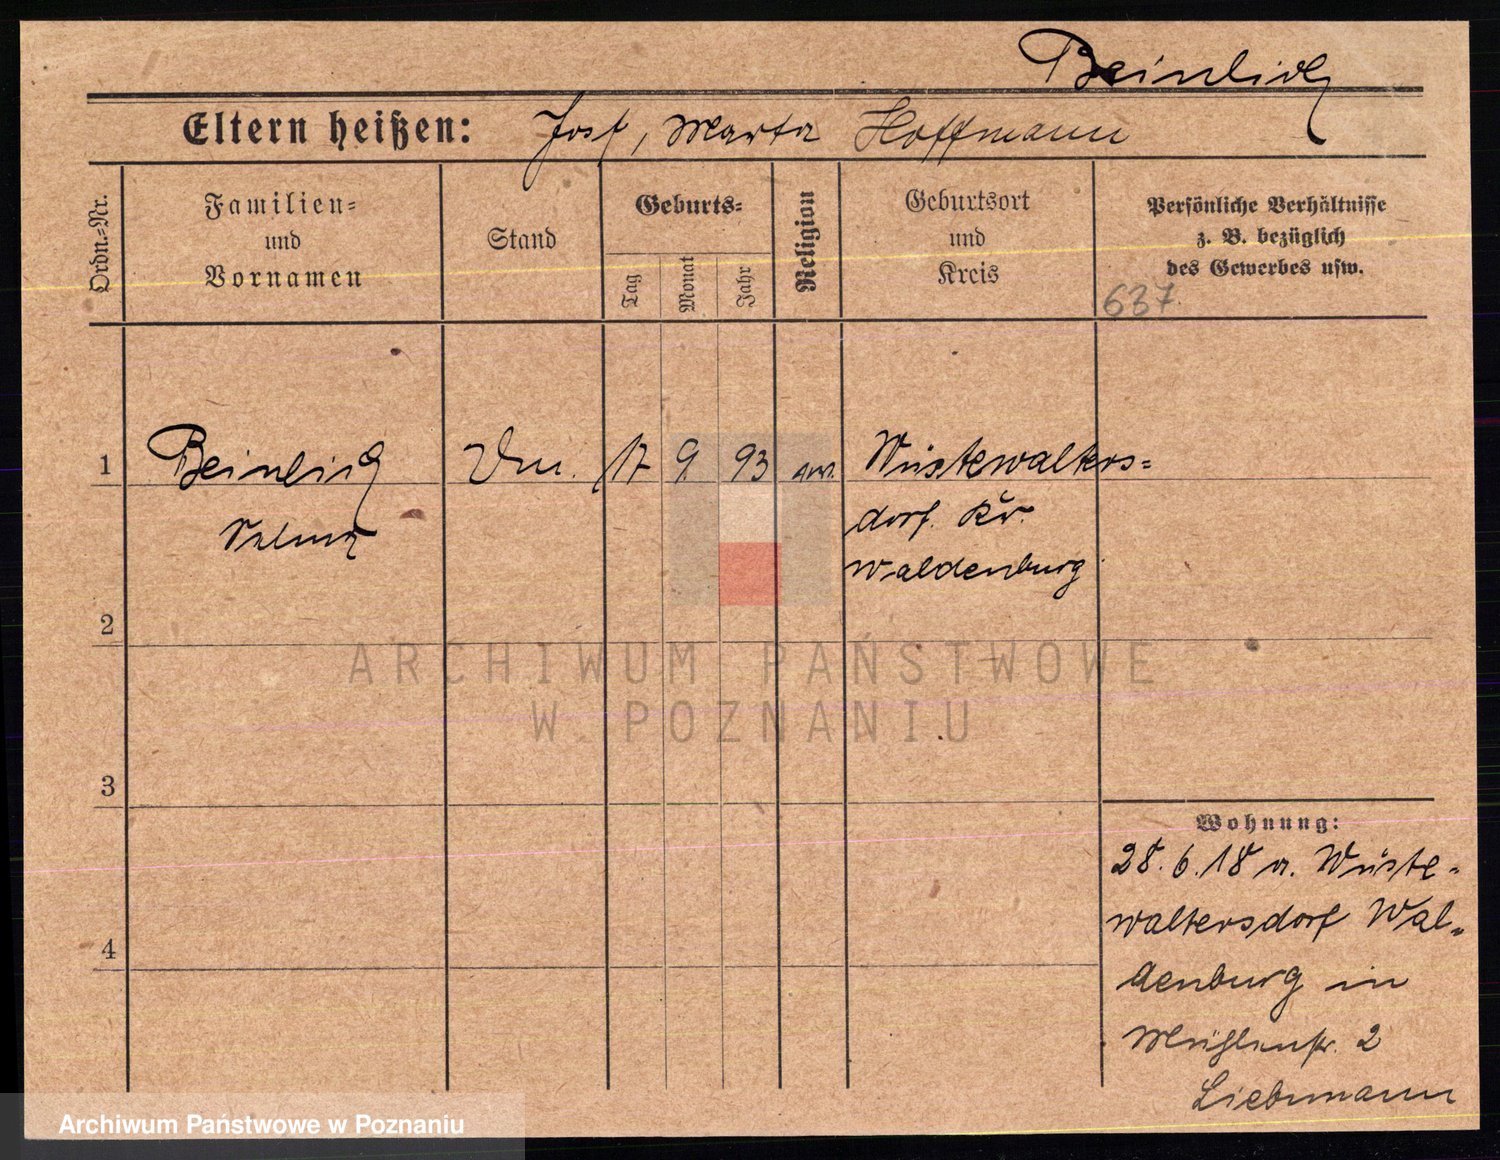 Beinlich
Eltern heißen: Josf, Marta Hoffmann
Ordn.-Nr.
Familien-
und
Vornamen
Stand
Geburts-
Tag
Monat
Jahr
Religion
Geburtsort
und
Kreis
Persönliche Verhältnisse
z. B. bezüglich
des Gewerbes usw.
637
1 Beinlich 17 9. 93 Wüstewalters-
Selma dorf. Kr.
Waldenburg
2
ARCHIWUM PAŃSTWOWE
W POZNANIU
3
Wohnung:
28. 6. 18 a. Wüste-
waltersdorf Wal-
4
denburg in
Mühlenstr. 2
Liebmann
Archiwum Państwowe w Poznaniu